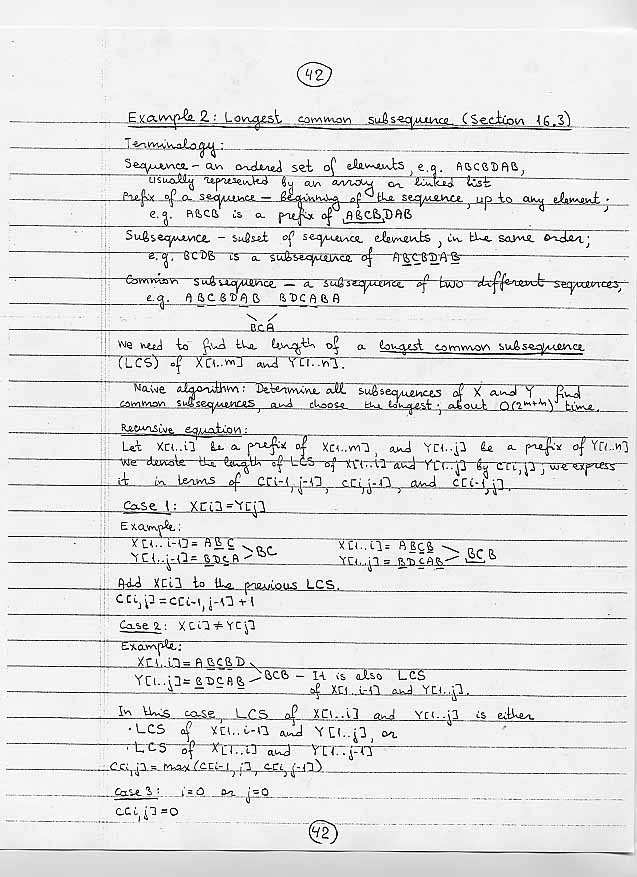 42
Example 2: Longest common subsequence (Section 16.3)
Terminology:
Sequence – an ordered set of elements, e.g. ABCBDAB,
usually represented by an array or linked list
Prefix of a sequence – beginning of the sequence, up to any element;
e.g. ABCB is a prefix of ABCBDAB
Subsequence – subset of sequence elements, in the same order;
e.g. BCDB is a subsequence of ABCBDAB
Common subsequence – a subsequence of two different sequences,
e.g. ABCBDAB BDCABA
BCA
We need to find the length of a longest common subsequence
(LCS) of X[1..m] and Y[1..n].
Naive algorithm: Determine all subsequences of X and Y, find
common subsequences, and choose the longest; about O(2^(m+n)) time.
Recursive equation:
Let X[1..i] be a prefix of X[1..m], and Y[1..j] be a prefix of Y[1..n]
We denote the length of LCS of X[1..i] and Y[1..j] by C[i,j]; we express
it in terms of C[i-1,j-1], C[i,j-1], and C[i-1,j].
Case 1: X[i]=Y[j]
Example:
X[1..i-1]= ABC X[1..i]= ABCB
BC BCB
Y[1..j-1]= BDCA Y[1..j]= BDCAB
Add X[i] to the previous LCS.
C[i,j]=C[i-1,j-1]+1
Case 2: X[i]≠Y[j]
Example:
X[1..i]= ABCBD
BCB – It is also LCS
Y[1..j]= BDCAB
of X[1..i-1] and Y[1..j].
In this case, LCS of X[1..i] and Y[1..j] is either
· LCS of X[1..i-1] and Y[1..j], or
· LCS of X[1..i] and Y[1..j-1]
C[i,j]=max(C[i-1,j], C[i,j-1])
Case 3: i=0 or j=0
C[i,j]=0
42